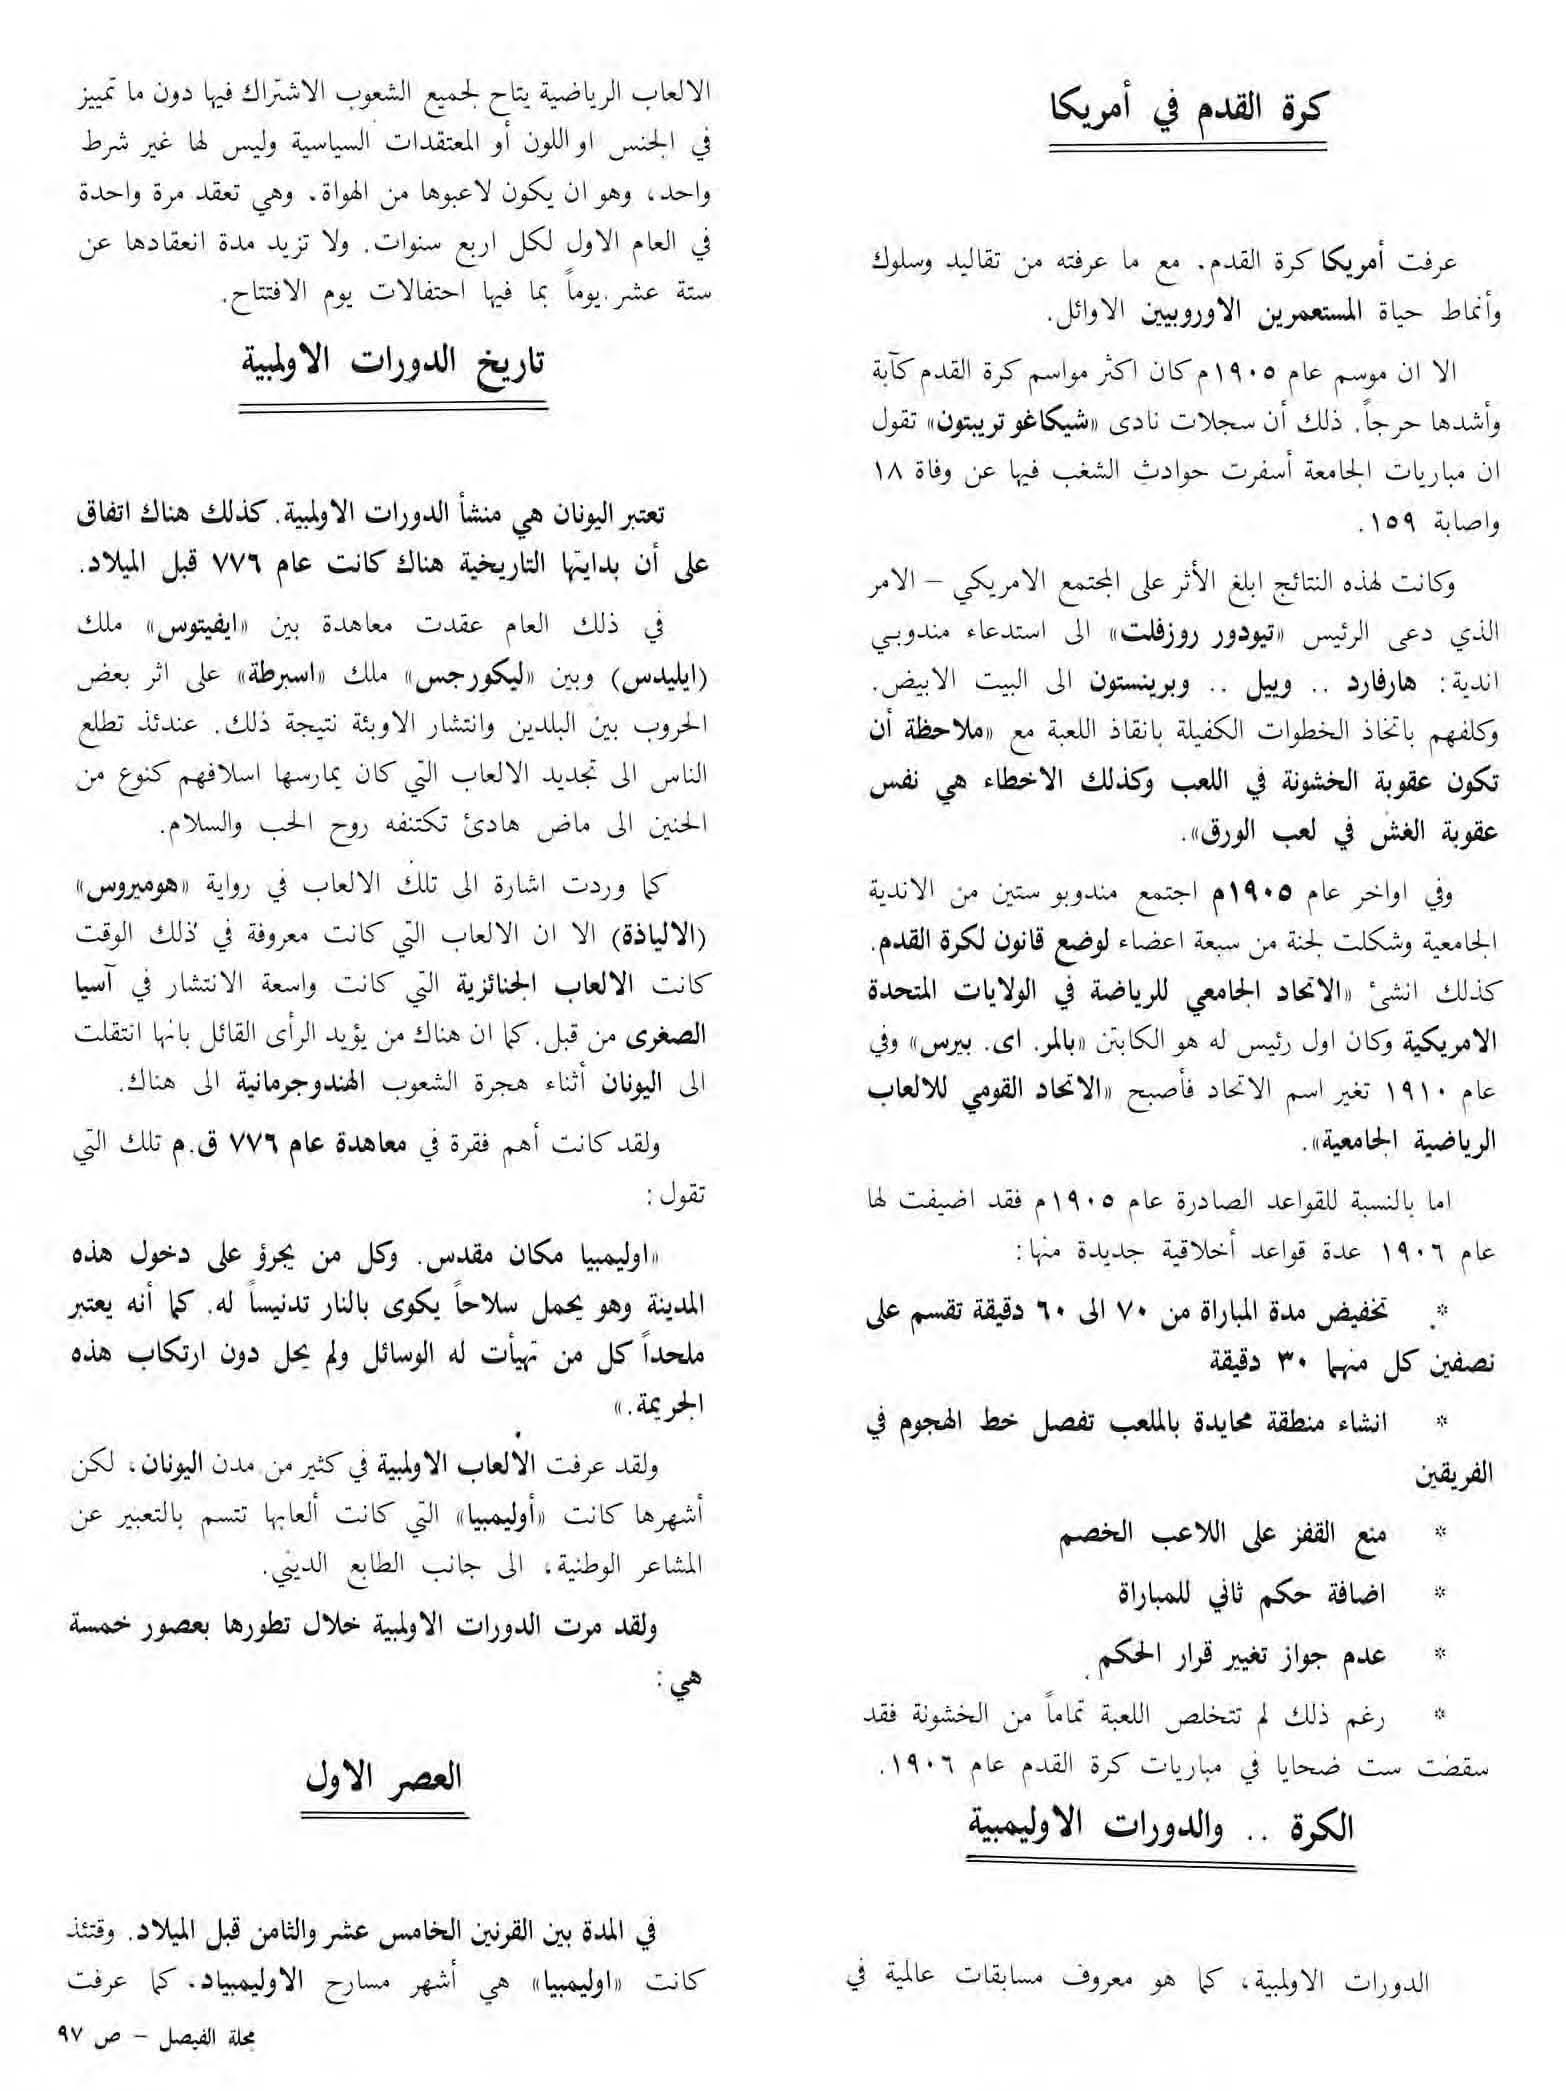 كرة القدم في أمريكا
عرفت أمريكا كرة القدم. مع ما عرفته من تقاليد وسلوك
وأنماط حياة المستعمرين الاوروبيين الاوائل.
الا ان موسم عام ١٩٠٥م كان اكثر مواسم كرة القدم كآبة
وأشدها حرجاً. ذلك أن سجلات نادى «شيكاغو تريبتون» تقول
ان مباريات الجامعة أسفرت حوادث الشغب فيها عن وفاة ١٨
واصابة ١٥٩.
وكانت لهذه النتائج ابلغ الأثر على المجتمع الامريكي – الامر
الذي دعى الرئيس «تيودور روزفلت» الى استدعاء مندوبي
اندية: هارفارد .. وييل .. وبرينستون الى البيت الابيض.
وكلفهم باتخاذ الخطوات الكفيلة بانقاذ اللعبة مع «ملاحظة أن
تكون عقوبة الخشونة في اللعب وكذلك الاخطاء هي نفس
عقوبة الغش في لعب الورق».
وفي اواخر عام ١٩٠٥م اجتمع مندوبو ستين من الاندية
الجامعية وشكلت لجنة من سبعة اعضاء لوضع قانون لكرة القدم.
كذلك انشئ «الاتحاد الجامعي للرياضة في الولايات المتحدة
الامريكية وكان اول رئيس له هو الكابتن «بالمر. اى. بيرس» وفي
عام ١٩١٠ تغير اسم الاتحاد فأصبح «الاتحاد القومي للالعاب
الرياضية الجامعية».
اما بالنسبة للقواعد الصادرة عام ١٩٠٥م فقد اضيفت لها
عام ١٩٠٦ عدة قواعد أخلاقية جديدة منها:
* تخفيض مدة المباراة من ٧٠ الى ٦٠ دقيقة تقسم على
نصفين كل منهما ٣٠ دقيقة
* انشاء منطقة محايدة بالملعب تفصل خط الهجوم في
الفريقين
* منع القفز على اللاعب الخصم
* اضافة حكم ثاني للمباراة
* عدم جواز تغيير قرار الحكم.
* رغم ذلك لم تتخلص اللعبة تماماً من الخشونة فقد
سقطت ست ضحايا في مباريات كرة القدم عام ١٩٠٦.
الكرة .. والدورات الاوليمبية
الدورات الاولمبية، كما هو معروف مسابقات عالمية في
الالعاب الرياضية يتاح لجميع الشعوب الاشتراك فيها دون ما تمييز
في الجنس او اللون أو المعتقدات السياسية وليس لها غير شرط
واحد، وهو ان يكون لاعبوها من الهواة. وهي تعقد مرة واحدة
في العام الاول لكل اربع سنوات. ولا تزيد مدة انعقادها عن
ستة عشر يوماً بما فيها احتفالات يوم الافتتاح.
تاريخ الدورات الاولمبية
تعتبر اليونان هي منشأ الدورات الاولمبية. كذلك هناك اتفاق
على أن بدايتها التاريخية هناك كانت عام ٧٧٦ قبل الميلاد.
في ذلك العام عقدت معاهدة بين «ايفيتوس» ملك
(ايليدس) وبين «ليكورجس» ملك «اسبرطة» على اثر بعض
الحروب بين البلدين وانتشار الاوبئة نتيجة ذلك. عندئذ تطلع
الناس الى تجديد الالعاب التي كان يمارسها اسلافهم كنوع من
الحنين الى ماض هادئ تكتنفه روح الحب والسلام.
كما وردت اشارة الى تلك الالعاب في رواية «هوميروس»
(الالياذة) الا ان الالعاب التي كانت معروفة في ذلك الوقت
كانت الالعاب الجنائزية التي كانت واسعة الانتشار في آسيا
الصغرى من قبل. كما ان هناك من يؤيد الرأى القائل بانها انتقلت
الى اليونان أثناء هجرة الشعوب الهندوجرمانية الى هناك.
ولقد كانت أهم فقرة في معاهدة عام ٧٧٦ ق.م تلك التي
تقول:
«اوليمبيا مكان مقدس. وكل من يجرؤ على دخول هذه
المدينة وهو يحمل سلاحاً يكوى بالنار تدنيساً له. كما أنه يعتبر
ملحداً كل من تهيأت له الوسائل ولم يحل دون ارتكاب هذه
الجريمة.»
ولقد عرفت الألعاب الاولمبية في كثير من مدن اليونان، لكن
أشهرها كانت «أوليمبيا» التي كانت ألعابها تتسم بالتعبير عن
المشاعر الوطنية، الى جانب الطابع الديني.
ولقد مرت الدورات الاولمبية خلال تطورها بعصور خمسة
هي:
العصر الاول
في المدة بين القرنين الخامس عشر والثامن قبل الميلاد. وقتئذ
كانت «اوليمبيا» هي أشهر مسارح الاوليمبياد. كما عرفت
مجلة الفيصل – ص ٩٧